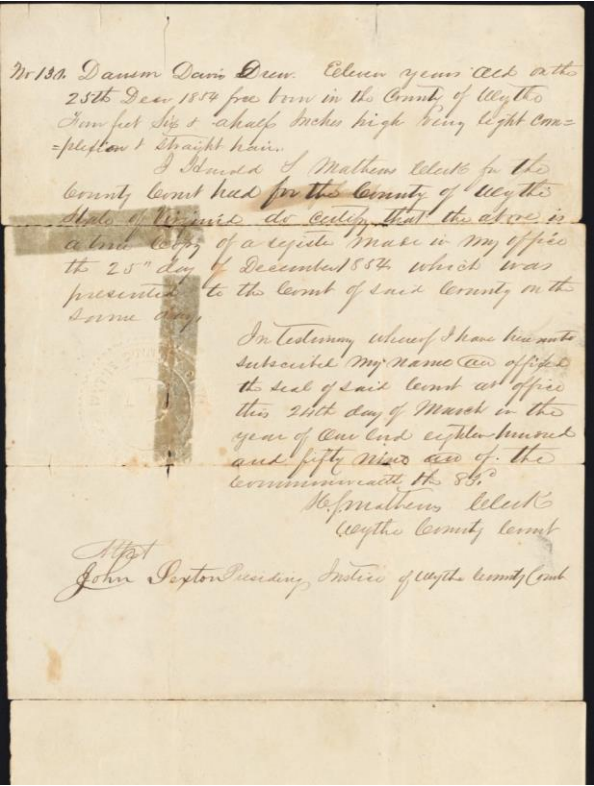 No 132. Dawson Davis Drew. Eleven years old on the
25th Decr 1854 free born in the County of Wythe
Four feet Six & a half Inches high Very light com=
=plexion & straight hair.
I S Mathews Clerk for the
County Court held for the County of Wythe
State of Virginia do certify that the above is
a true Copy of a registe made in my office
th 25" day of December 1854 which was
presented to the Court of said County on the
same day.
In Testimony whereof I have here unto
subscribed my name and affixed
the seal of said Court at office
this 24th day of March in the
year of our Lord eighteen hundred
and fifty nine and of the
Commonwealth the 83d
Mathews Clerk
Wythe County Court
Attest
John Sexton Presiding Justice of Wythe County Court